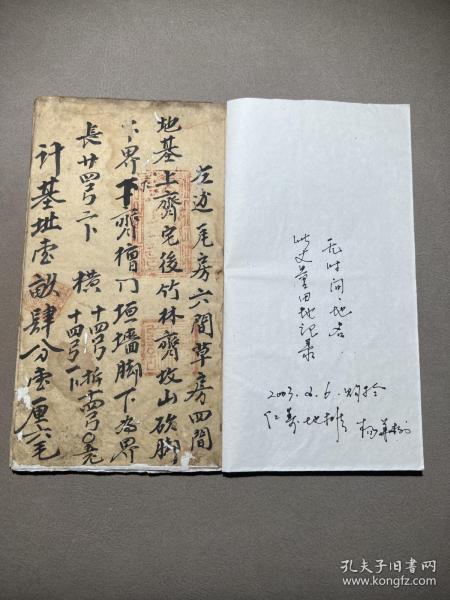 左述瓦房六間草房四間
地基上齊宅後竹林齊坟山砍脚
為界下齊檐门垣墻脚下為界
長廿四弓二卜 横十四弓一卜 十四弓 折
计基址壹畝肆分壹厘六毛
无时间、地名
此丈量田地记录
2003.2.6.购于
仁寿地摊
孔夫子旧书网
www.kongfz.com